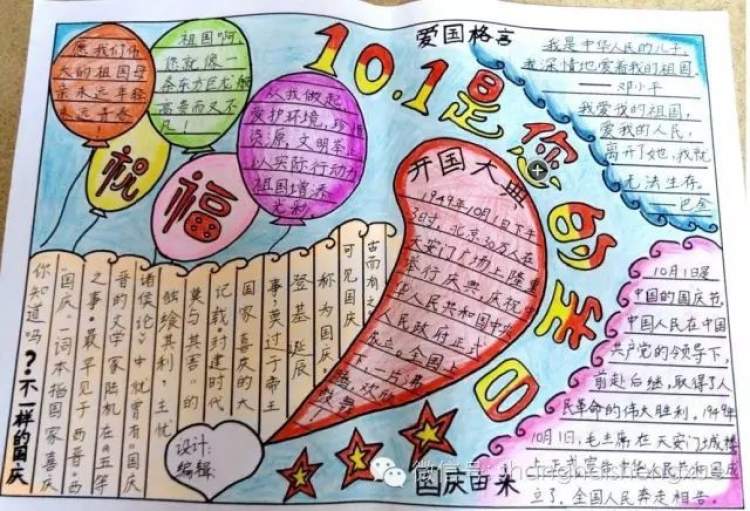 愿我们伟
大的祖国母
亲永远年轻
永远青春
!
祖国啊,
你就像一
条东方巨龙,
高贵而又不
凡!
从我做起,
爱护环境,珍惜
资源,文明举止
以实际行动为
祖国增添
光彩。
祝
福
10.1是您的生日
爱国格言
我是中华人民的儿子。
我深情地爱着我的祖国。
——邓小平
我爱我的祖国,
爱我的人民,
离开了她,我就
无法生存。
——巴金
开国大典
1949年10月1日下午
3时,北京30万人在
天安门广场上隆重
举行庆典,庆祝中
华人民共和国中央
人民政府正式
成立。全国上
下,一片
腾,欢欣
鼓舞!
?不一样的国庆
你知道吗
"国庆"一词本指国家喜庆
之事。最早见于西晋。西
晋的文学家陆机在《五等
诸侯论》中就曾有"国庆
独飨其利,主忧
莫与其害"的
记载封建时代
国家喜庆的大
事,莫过于帝王
登基诞辰
称为国庆。
可见国庆
古而有之。
设计:
编辑:
国庆由来
10月1日是
中国的国庆节,
中国人民在中国
共产党的领导下,
前赴后继,取得了人
民革命的伟大胜利。1949年
10月1日,毛主席在天安门城楼
上正式宣布中华人民共和国成
立了。全国人民奔走相告。
微信号: shanghaishengxue